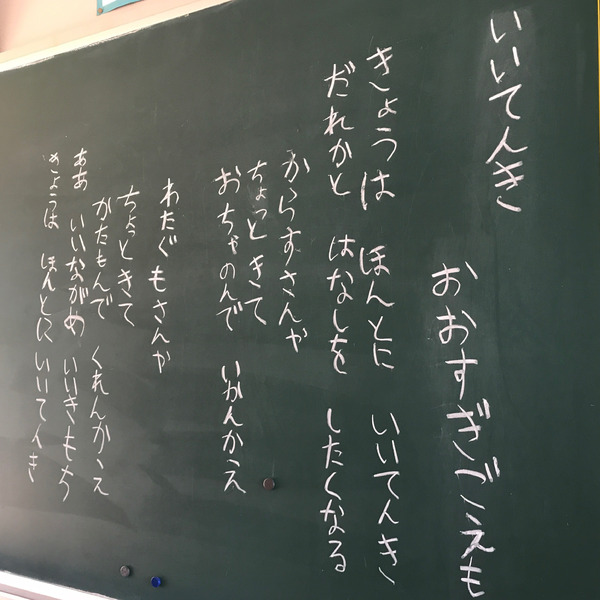 いいてんき
おおすぎごえも
きょうは ほんとに いいてんき
だれかと はなしを したくなる
からすさんや
ちょっときて
おちゃのんで いかんかえ
わたぐもさんや
ちょっときて
かたもんで くれんかえ
ああ いいながめ いいきもち
きょうは ほんとに いいてんき